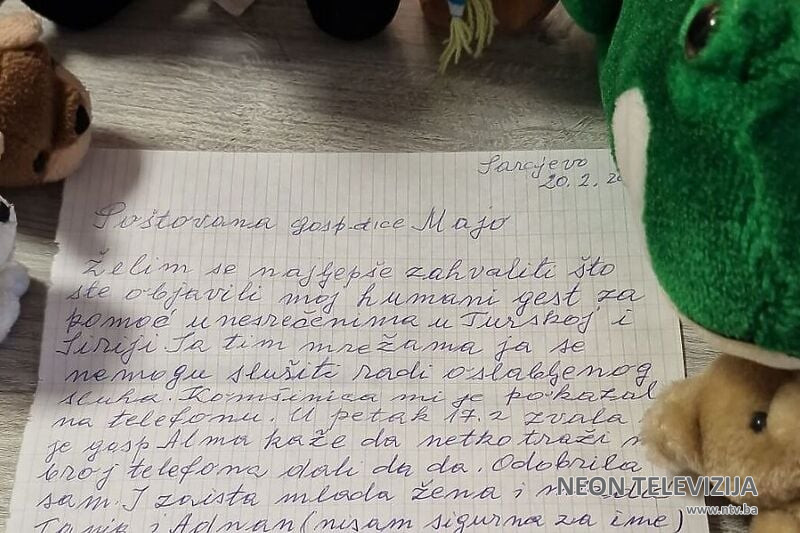 Sarajevo
20.2.20
Poštovana gosp-đice Majo
Želim se najljepše zahvaliti što
ste objavili moj humani gest za
pomoć unesrećenima u Turskoj i
Siriji Ja tim mrežama ja se
nemogu služiti radi oslabljenog
sluha. Komšinica mi je pokazal
na telefonu. U petak 17.2 zvala
je gosp Alma kaže da netko traži
broj telefona dali da da. Odobrila
sam. I zaista mlada žena i
Tanja i Adnan (nisam sigurna za ime)
NEON TELEVIZIJA
www.ntv.ba